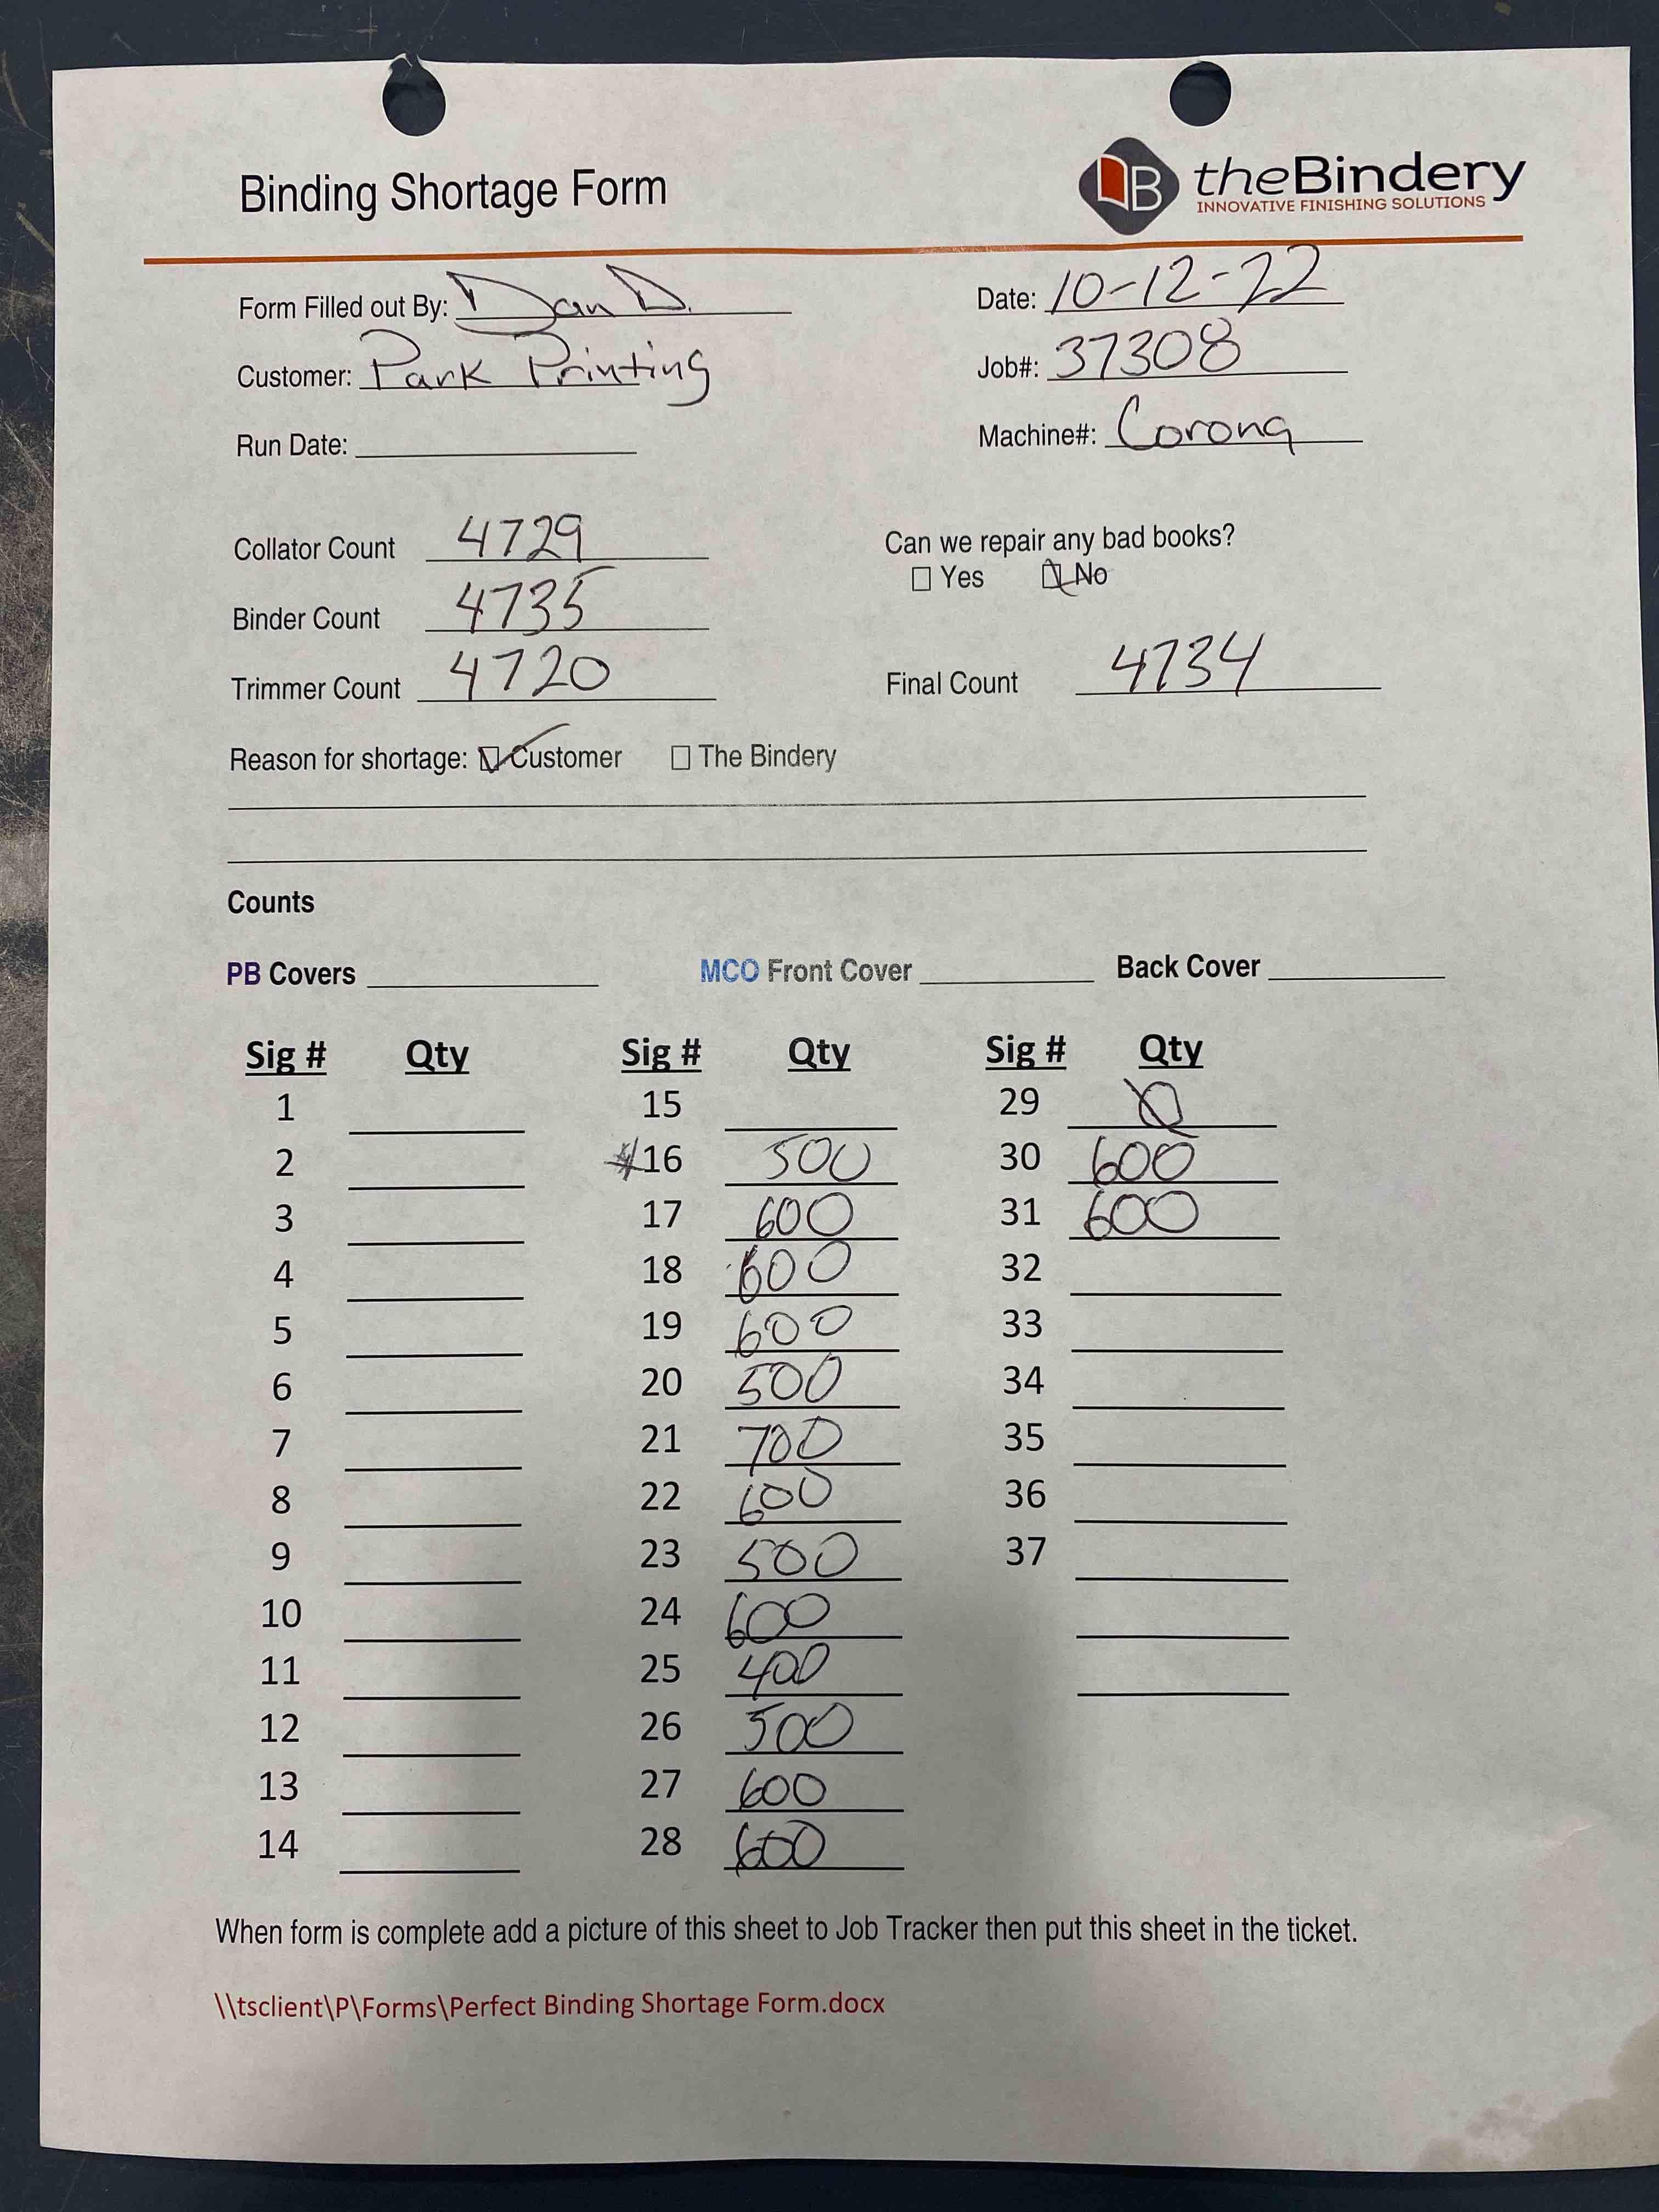 Binding Shortage Form
theBindery
INNOVATIVE FINISHING SOLUTIONS
Form Filled out By: Dan D. Date: 10-12-22
Customer: Park Printing Job#: 37308
Run Date: Machine#: Corona
Collator Count 4729 Can we repair any bad books?
☐ Yes ☒ No
Binder Count 4735
Trimmer Count 4720 Final Count 4734
Reason for shortage: ☑ Customer ☐ The Bindery
Counts
PB Covers MCO Front Cover Back Cover
Sig # Qty Sig # Qty Sig # Qty
1 15 29 0
2 16 500 30 600
3 17 600 31 600
4 18 600 32
5 19 600 33
6 20 500 34
7 21 700 35
8 22 600 36
9 23 500 37
10 24 600
11 25 400
12 26 500
13 27 600
14 28 600
When form is complete add a picture of this sheet to Job Tracker then put this sheet in the ticket.
\\tsclient\P\Forms\Perfect Binding Shortage Form.docx